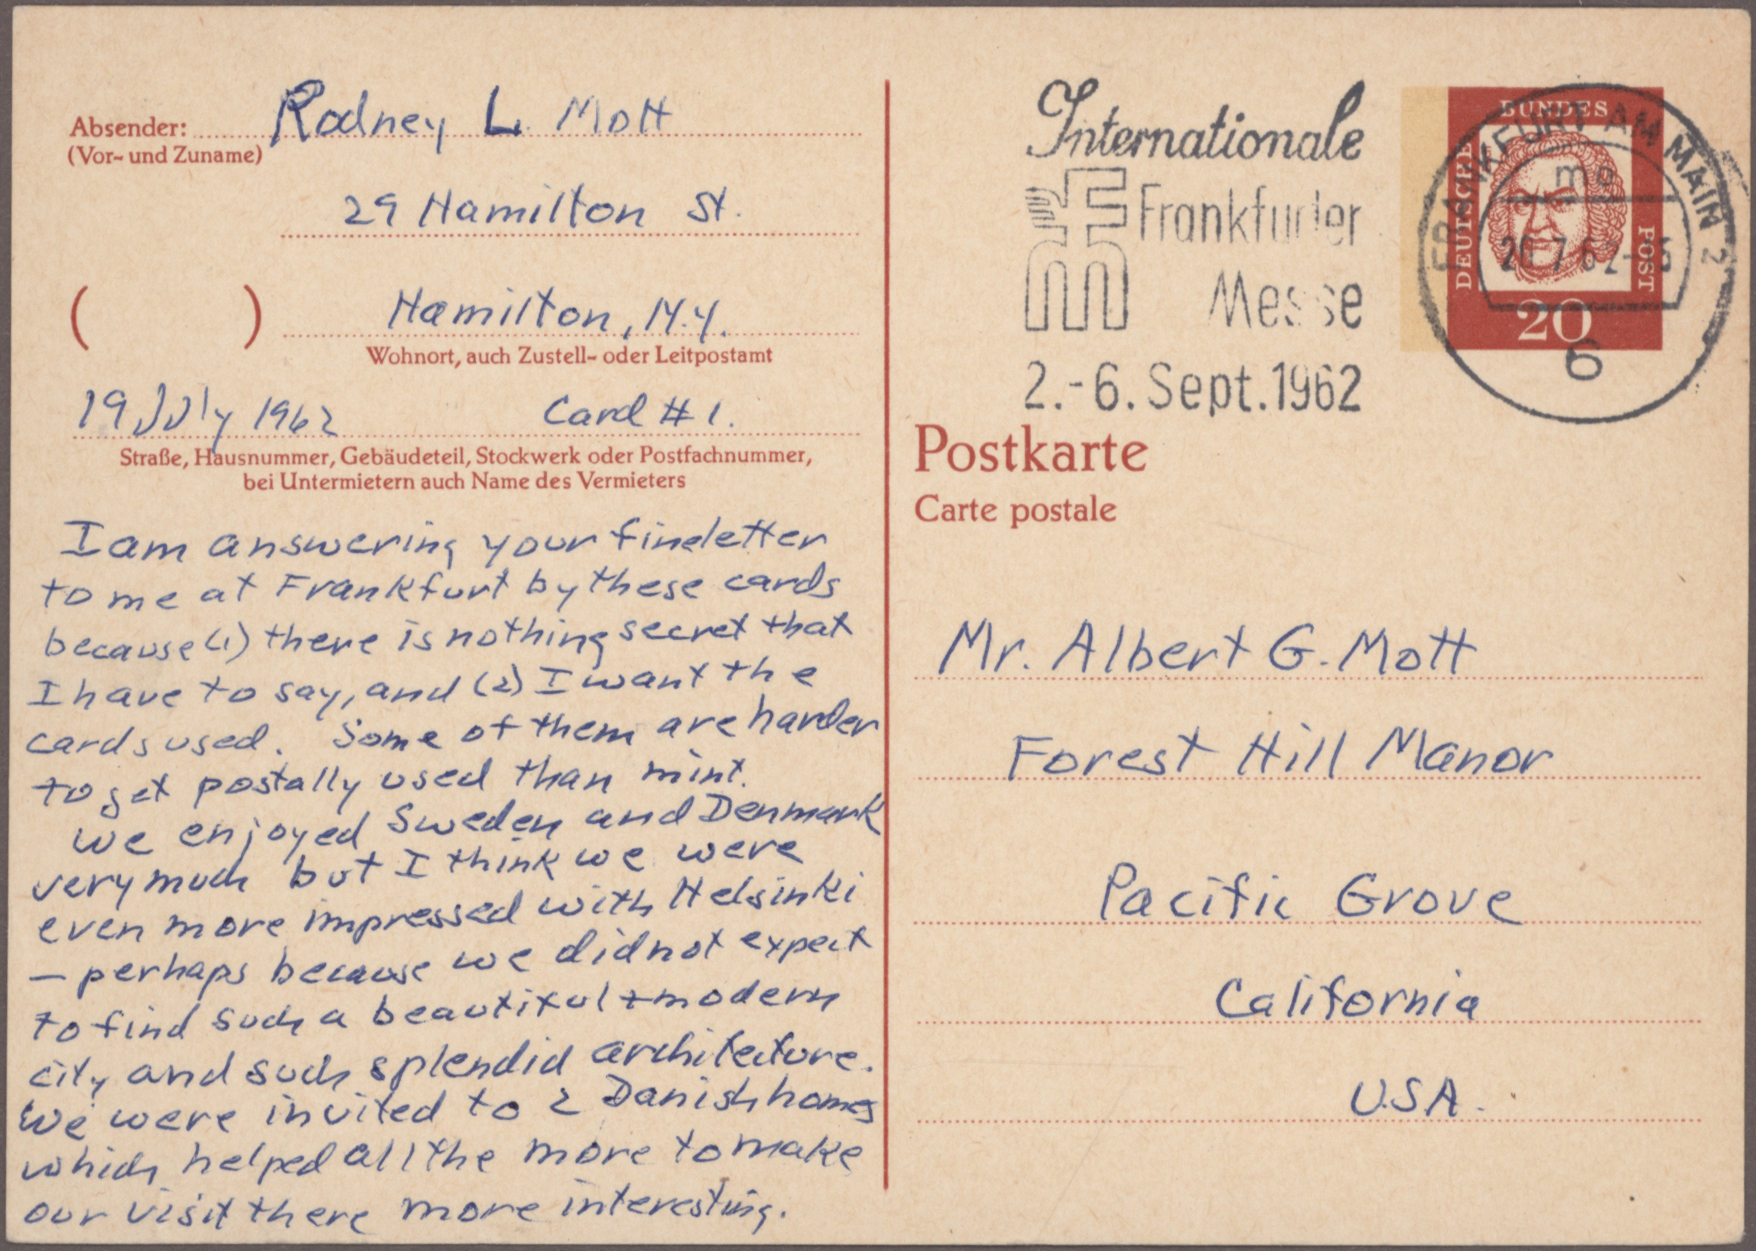 Absender: Rodney L. Mott
(Vor- und Zuname)
29 Hamilton St.
( ) Hamilton, N.Y.
Wohnort, auch Zustell- oder Leitpostamt
19 July 1962 Card # 1.
Straße, Hausnummer, Gebäudeteil, Stockwerk oder Postfachnummer,
bei Untermietern auch Name des Vermieters
I am answering your fine letter
to me at Frankfurt by these cards
because (1) there is nothing secret that
I have to say, and (2) I want the
cards used. Some of them are harder
to get postally used than mint.
We enjoyed Sweden and Denmark
very much but I think we were
even more impressed with Helsinki
— perhaps because we did not expect
to find such a beautiful + modern
city and such splendid architecture.
We were invited to 2 Danish homes
which helped all the more to make
our visit there more interesting.
Internationale
Frankfurter
Messe
2.-6. Sept. 1962
DEUTSCHE BUNDES POST
20
FRANKFURT AM MAIN 2
6
Postkarte
Carte postale
Mr. Albert G. Mott
Forest Hill Manor
Pacific Grove
California
U.S.A.